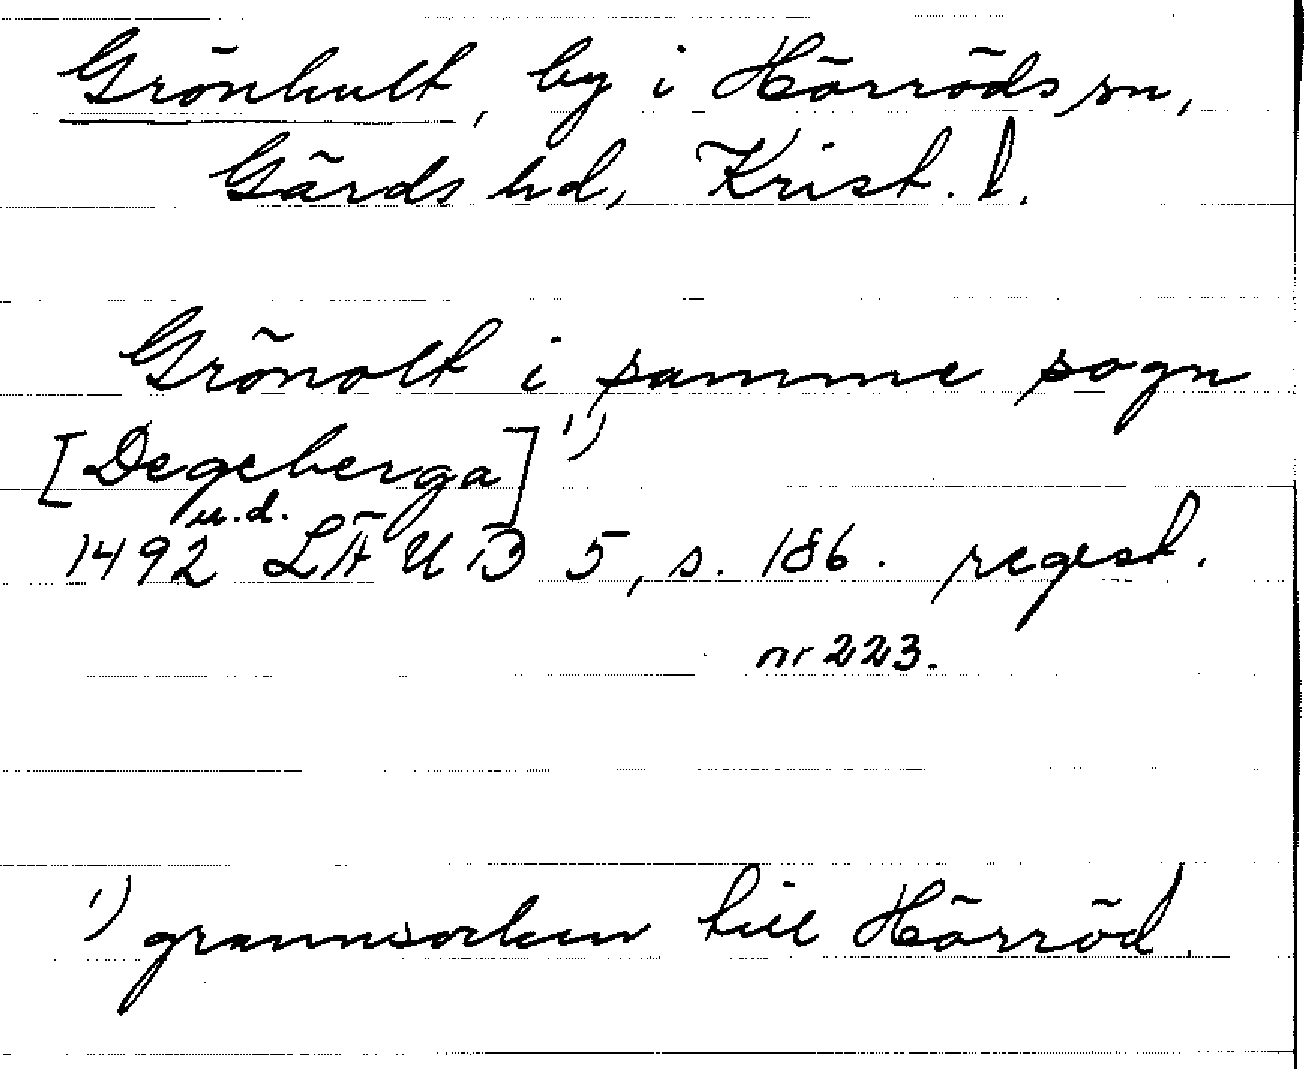 Grönhult, by i Hörröds sn,
Gärds hd, Krist. l.
Grönolt i samme sogn
[Degeberga] 1)
u.d.
1492 LÄUB 5, s. 186. regest.
nr 223.
1) grannsocken till Hörröd.